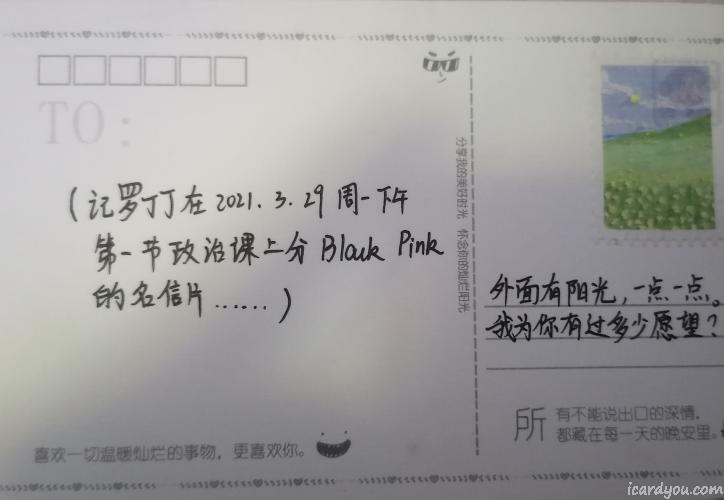 TO:
(记罗丁丁在2021.3.29周一下午
第一节政治课上分Black Pink
的名信片……)
喜欢一切温暖灿烂的事物，更喜欢你。
分享我的美好时光 怀念你的灿烂阳光
外面有阳光，一点一点。
我为你有过多少愿望？
所有不能说出口的深情，
都藏在每一天的晚安里。
icardyou.com